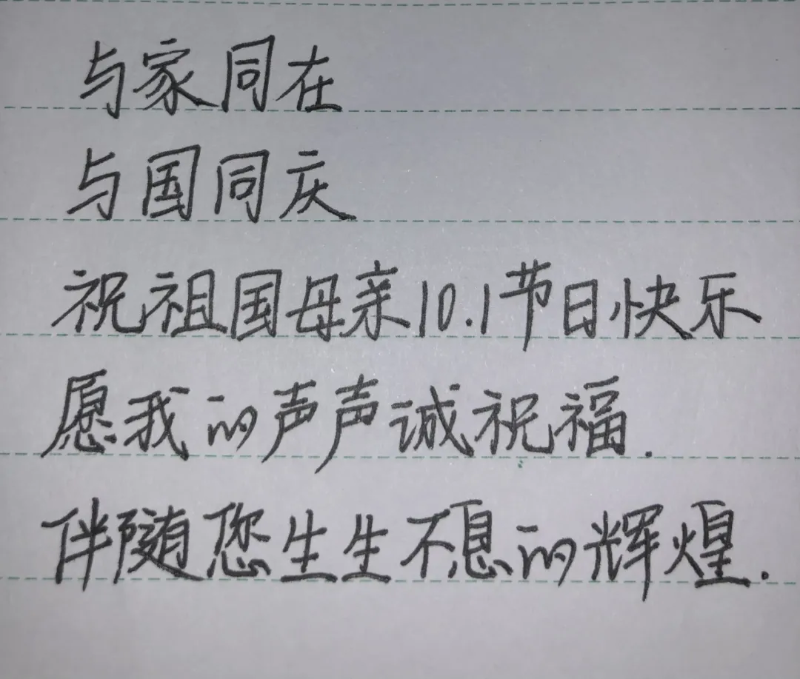 与家同在
与国同庆
祝祖国母亲10.1节日快乐
愿我的声声诚祝福.
伴随您生生不息的辉煌.